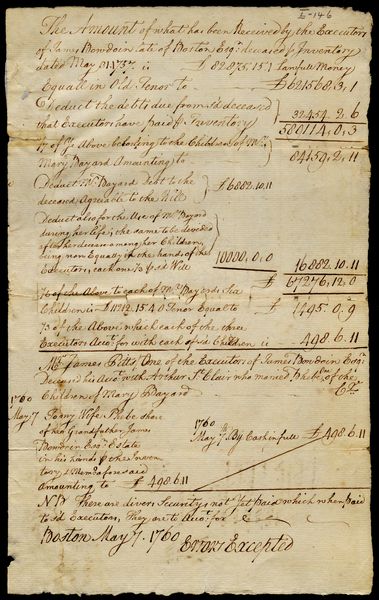 I-146
The Amount of what has been Received by the Executors
of James Bowdoin late of Boston Esqr. deceased pr Inventory
dated May 8 is £82875.15.1 Lawfull Money
Equall in Old Tenor to £621568.3.1
Deduct the debts due from sd deceased
that Executors have paid pr Inventory 32454.2.6
580114.0.3
of ye Above belonging to the Children of Mrs.
Mary Bayard Amounting to 84159.2.11
Deduct Mrs. Bayard Debt to the
deceased Agreable to the Will £6882.10.11
Deduct also for the Use of Mrs. Bayard
during her life; the same to be devided
after her decease among her Children,
being now Equally in the hands of the
Executors, each one pr sd Will 10000.0.0 16882.10.11
£67276.12.0
of the Above to each of Mrs. Bayards Six
Children is Tenor Equal to £1495.0.9
of the Above which each of the three
Executors Accots. for with each of sd Children is 498.6.11
Mr. James Pitts One of the Executors of James Bowdoin Esqr.
Deceased his Accot. with Arthur St. Clair who married Phebe One of the
Children of Mary Bayard Cr.
1760
May 7 To my Wife Phebe share
of her Grandfather James
Bowdoin Esqr. Estate
in his hands pr the Inven
tory, & Mem afore said
amounting to £498.6.11
1760
May 7 By Cash in full £498.6.11
NB There are divers Securitys not yet paid which when Paid
to sd Executors, They are to Accot. for
Boston May 7. 1760
Errors Excepted